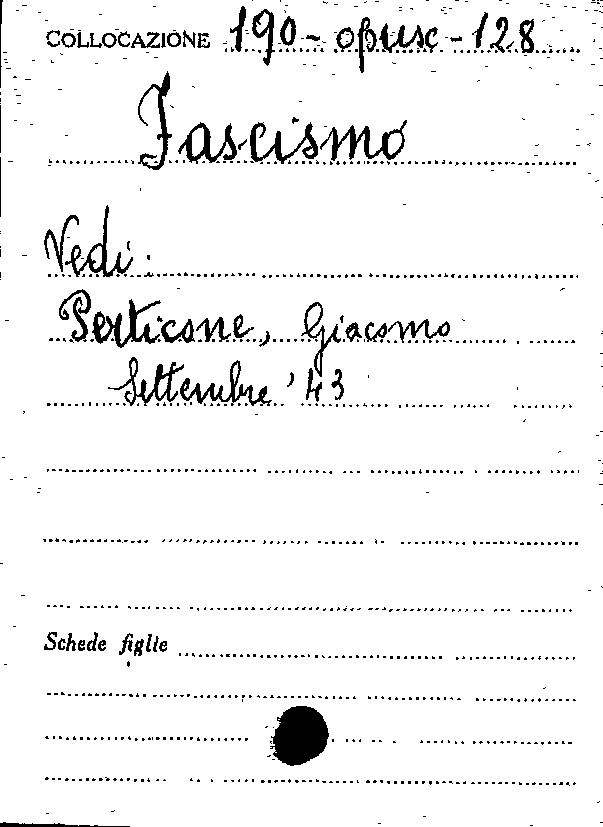 COLLOCAZIONE 190-opusc-128
Fascismo
Vedi:
Perticone, Giacomo
Settembre '43
Schede figlie